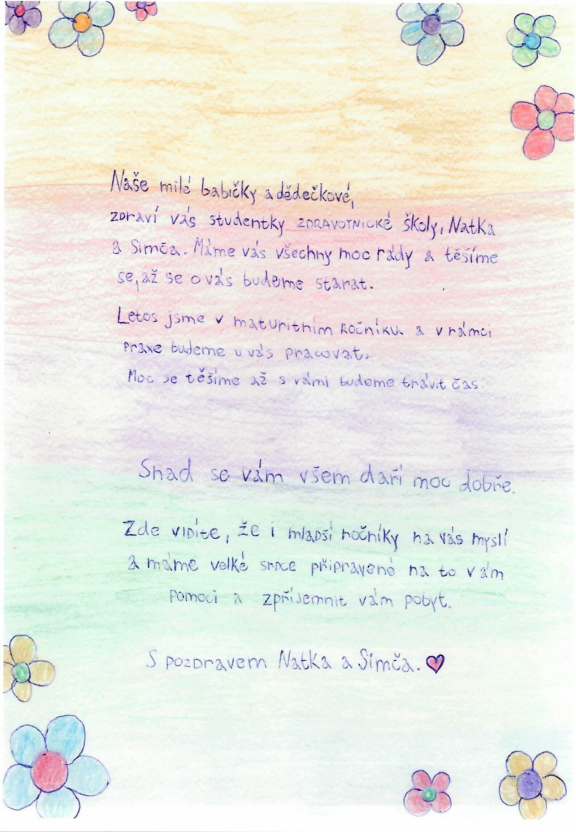 Naše milé babičky a dědečkové,
zdraví vás studentky zdravotnické školy, Natka
a Simča. Máme vás všechny moc rády a těšíme
se, až se o vás budeme starat.
Letos jsme v maturitním ročníku a v rámci
praxe budeme u vás pracovat.
Moc se těšíme až s vámi budeme trávit čas.
Snad se vám všem daří moc dobře.
Zde vidíte, že i mladší ročníky na vás myslí
a máme velké srdce připravené na to vám
pomoci a zpříjemnit vám pobyt.
S pozdravem Natka a Simča.